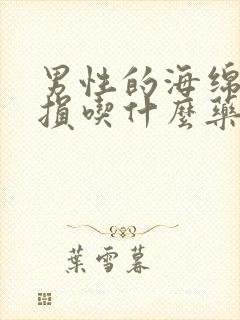 男性的海绵
損喫什麽藥
葉雪暮